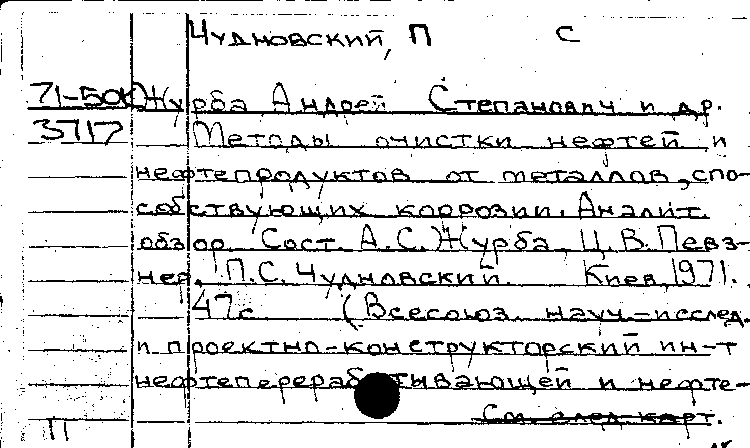 Чудновский, П С
71-50к Журба Андрей Степанович и др.
3717 Методы очистки нефтей и
нефтепродуктов от металлов, спо-
собствующих коррозии. Аналит.
обзор. Сост. А.С. Журба, Ц.В. Певз-
нер, П.С. Чудновский. Киев, 1971.
47 с (Всесоюз. науч-исслед.
и проектно-конструкторский ин-т
нефтеперерабатывающей и нефте-
См след карт.
П